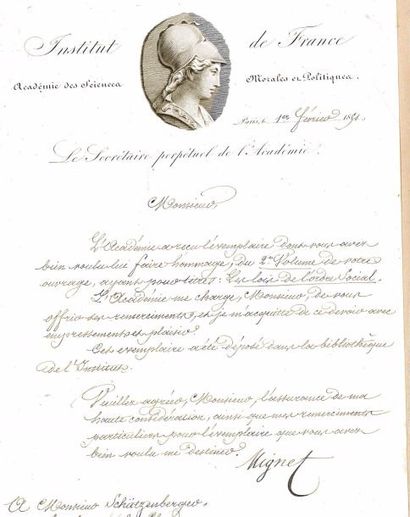 Institut de France
Académie des Sciences Morales et Politiques.
Paris, 1er février 1851.
Le Secrétaire perpétuel de l'Académie
Monsieur
L'Académie a reçu l'exemplaire dont vous avez
bien voulu lui faire hommage, du 2me Volume de votre
ouvrage, ayant pour titre: Les lois de l'ordre Social.
L'Académie me charge, Monsieur, de vous
offrir ses remerciments, et je m'acquitte de ce devoir avec
empressement et plaisir.
Cet exemplaire a été déposé dans la bibliothèque
de l'Institut.
Veuillez agréer, Monsieur, l'assurance de ma
haute considération, ainsi que mes remerciments
particuliers pour l'exemplaire que vous avez
bien voulu me destiner.
Mignet
A Monsieur Schützenberger.